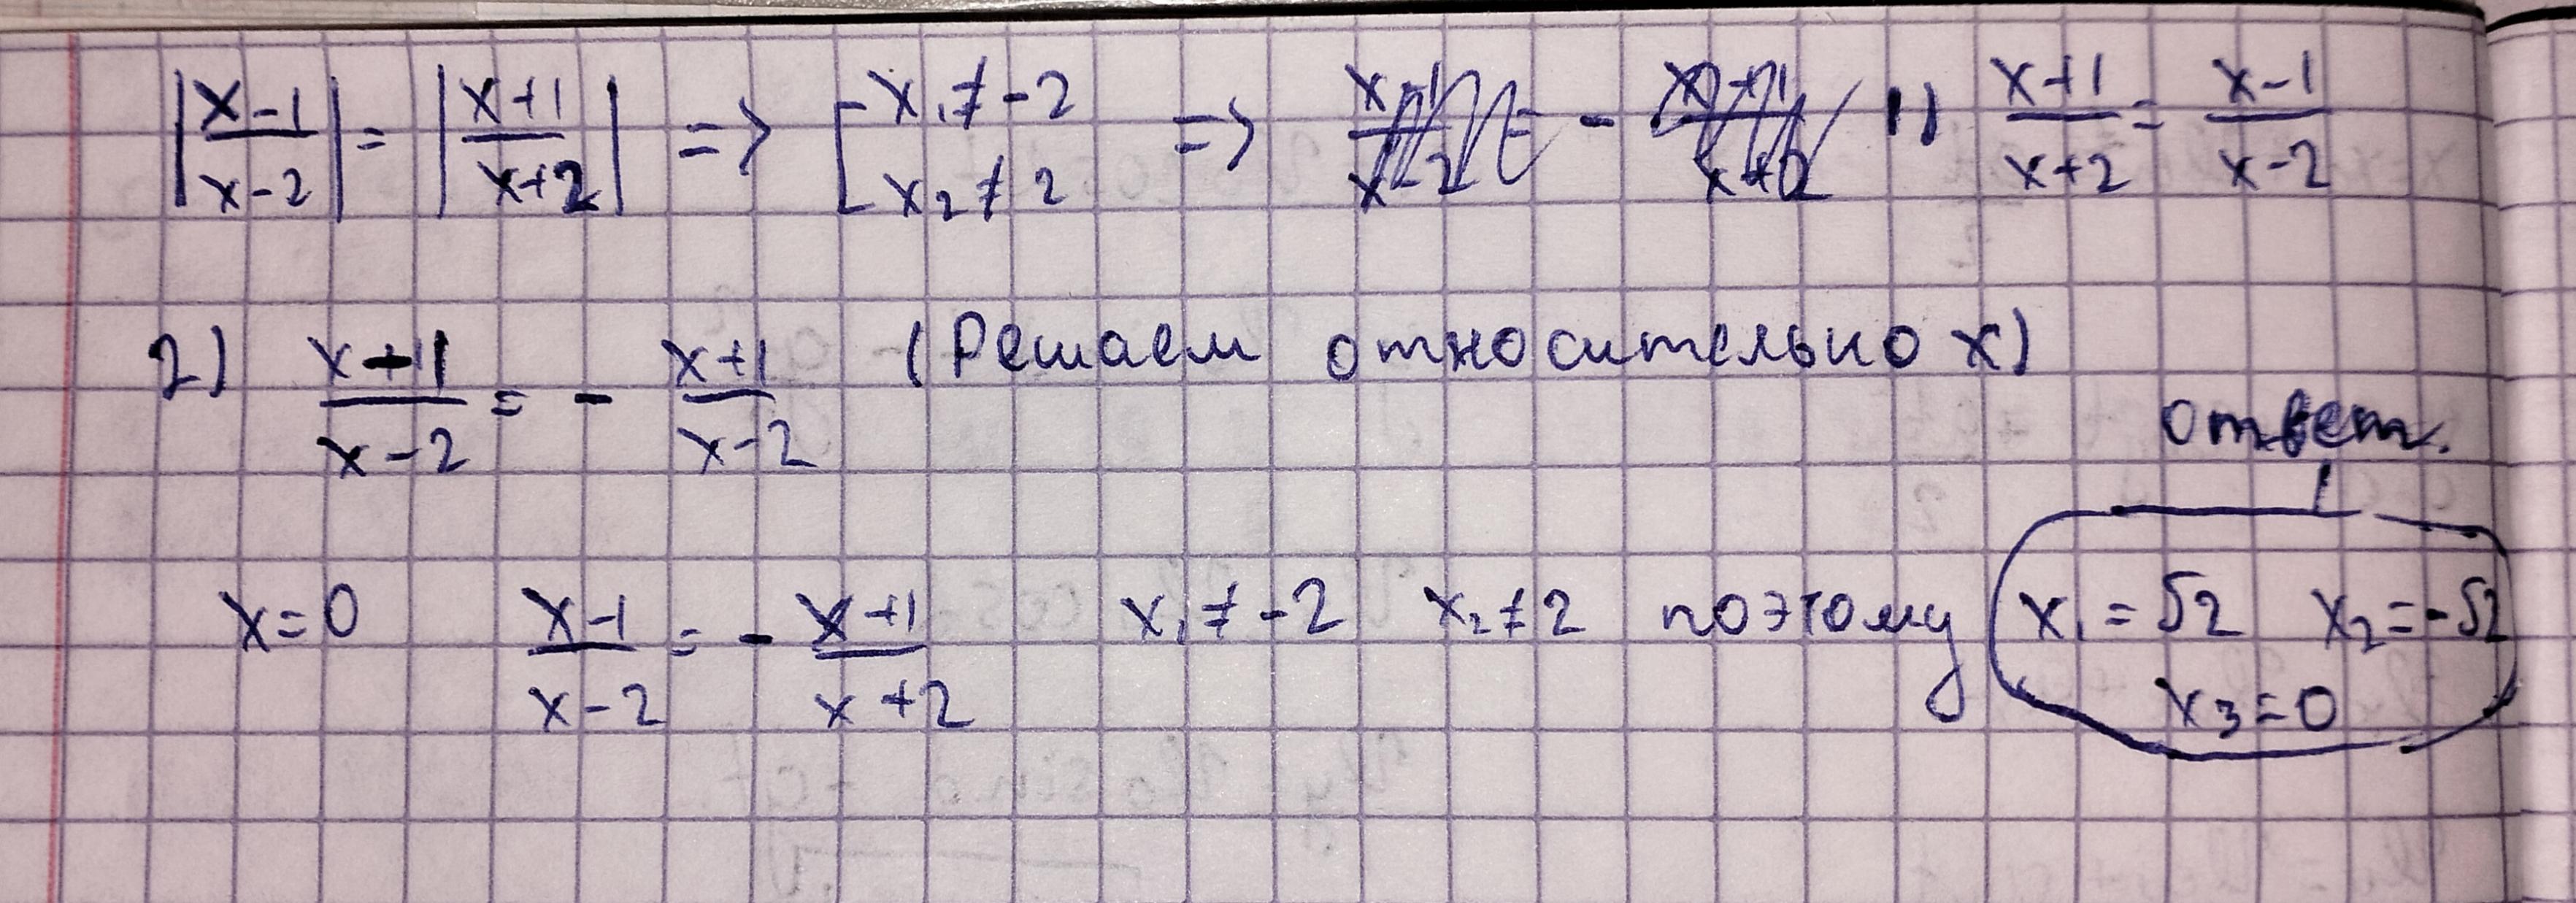 |x-1/x-2| = |x+1/x+2| => [x₁≠-2 x₂≠2 => x-1/x-2 = - x+1/x+2 1) x+1/x+2 = x-1/x-2
2) x+1/x-2 = - x+1/x-2 (Решаем относительно x)
ответ.
x=0 x-1/x-2 = - x+1/x+2 x₁≠-2 x₂≠2 поэтому x₁=√2 x₂=-√2
x₃=0